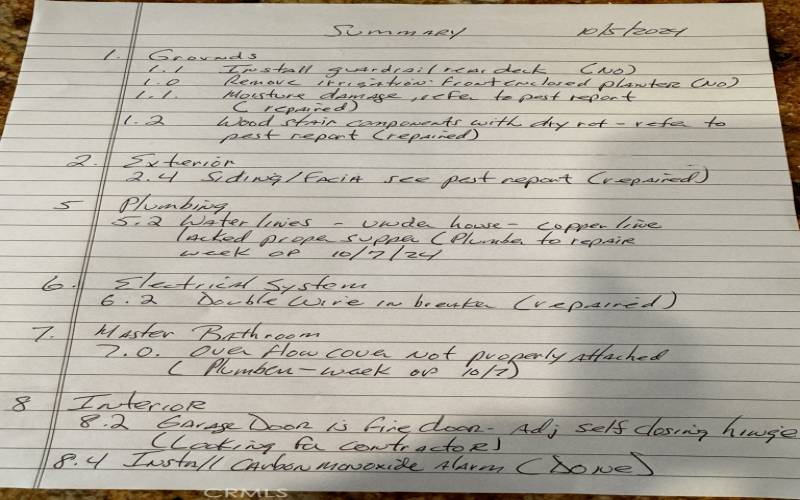 Summary 10/5/2024
1. Grounds
1.1 Install guardrail rear deck (No)
1.0 Remove irrigation: front enclosed planter (No)
1.1. Moisture damage, refer to pest report
(repaired)
1.2 Wood stair components with dry rot - refer to
pest report (repaired)
2. Exterior
2.4 Siding/Facia see pest report (repaired)
5 Plumbing
5.2 Water lines - under house - copper line
lacked proper supper (Plumber to repair
week of 10/7/24
6. Electrical System
6.2 Double wire in breaker (repaired)
7. Master Bathroom
7.0. Over flow cover not properly attached
(Plumber - week of 10/7)
8 Interior
8.2 Garage Door is fire door - Adj self closing hinge
(Looking for contractor)
8.4 Install Carbon monoxide Alarm (Done)
CRMLS